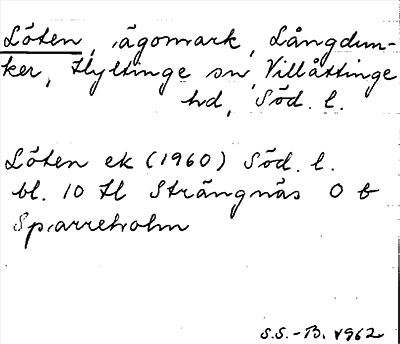 Löten, ägomark, Långdun-
ker, Hyltinge sn, Villåttinge
hd, Söd. l.
Löten ek (1960) Söd. l.
bl. 10 H Strängnäs O b
Sparreholm
S.S.-B. 1962